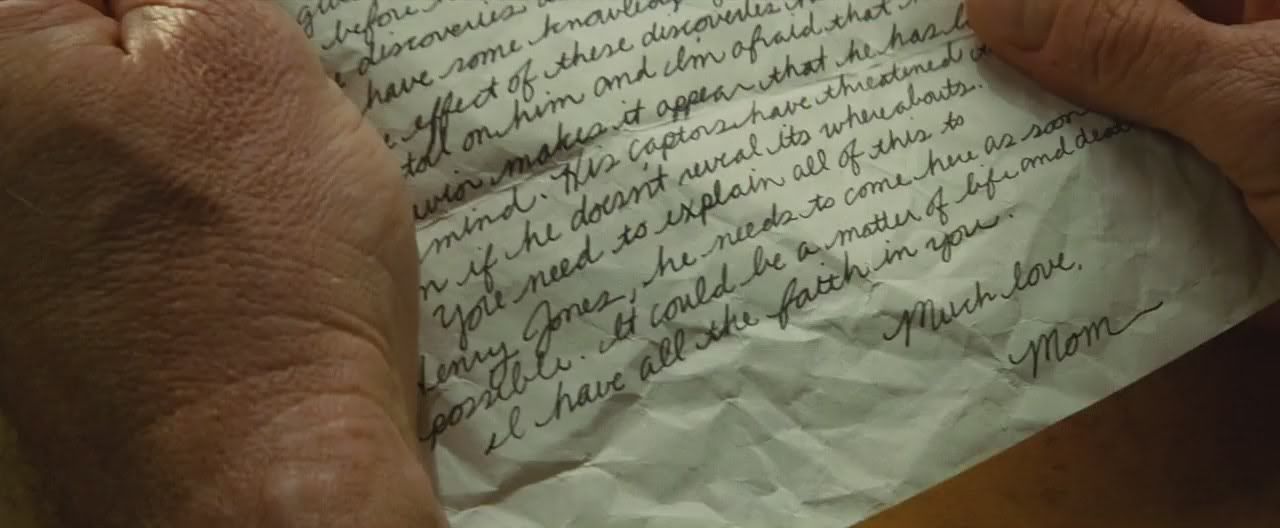 before
discoveries
have some knowledg
effect of these discoveries
toll on him and I'm afraid that
makes it appear that he has l
mind. His captors have threatened
n if he doesn't reveal its whereabouts.
You need to explain all of this to
Henry Jones, he needs to come here as soon
possible. It could be a matter of life and death
I have all the faith in you.
Much love,
Mom